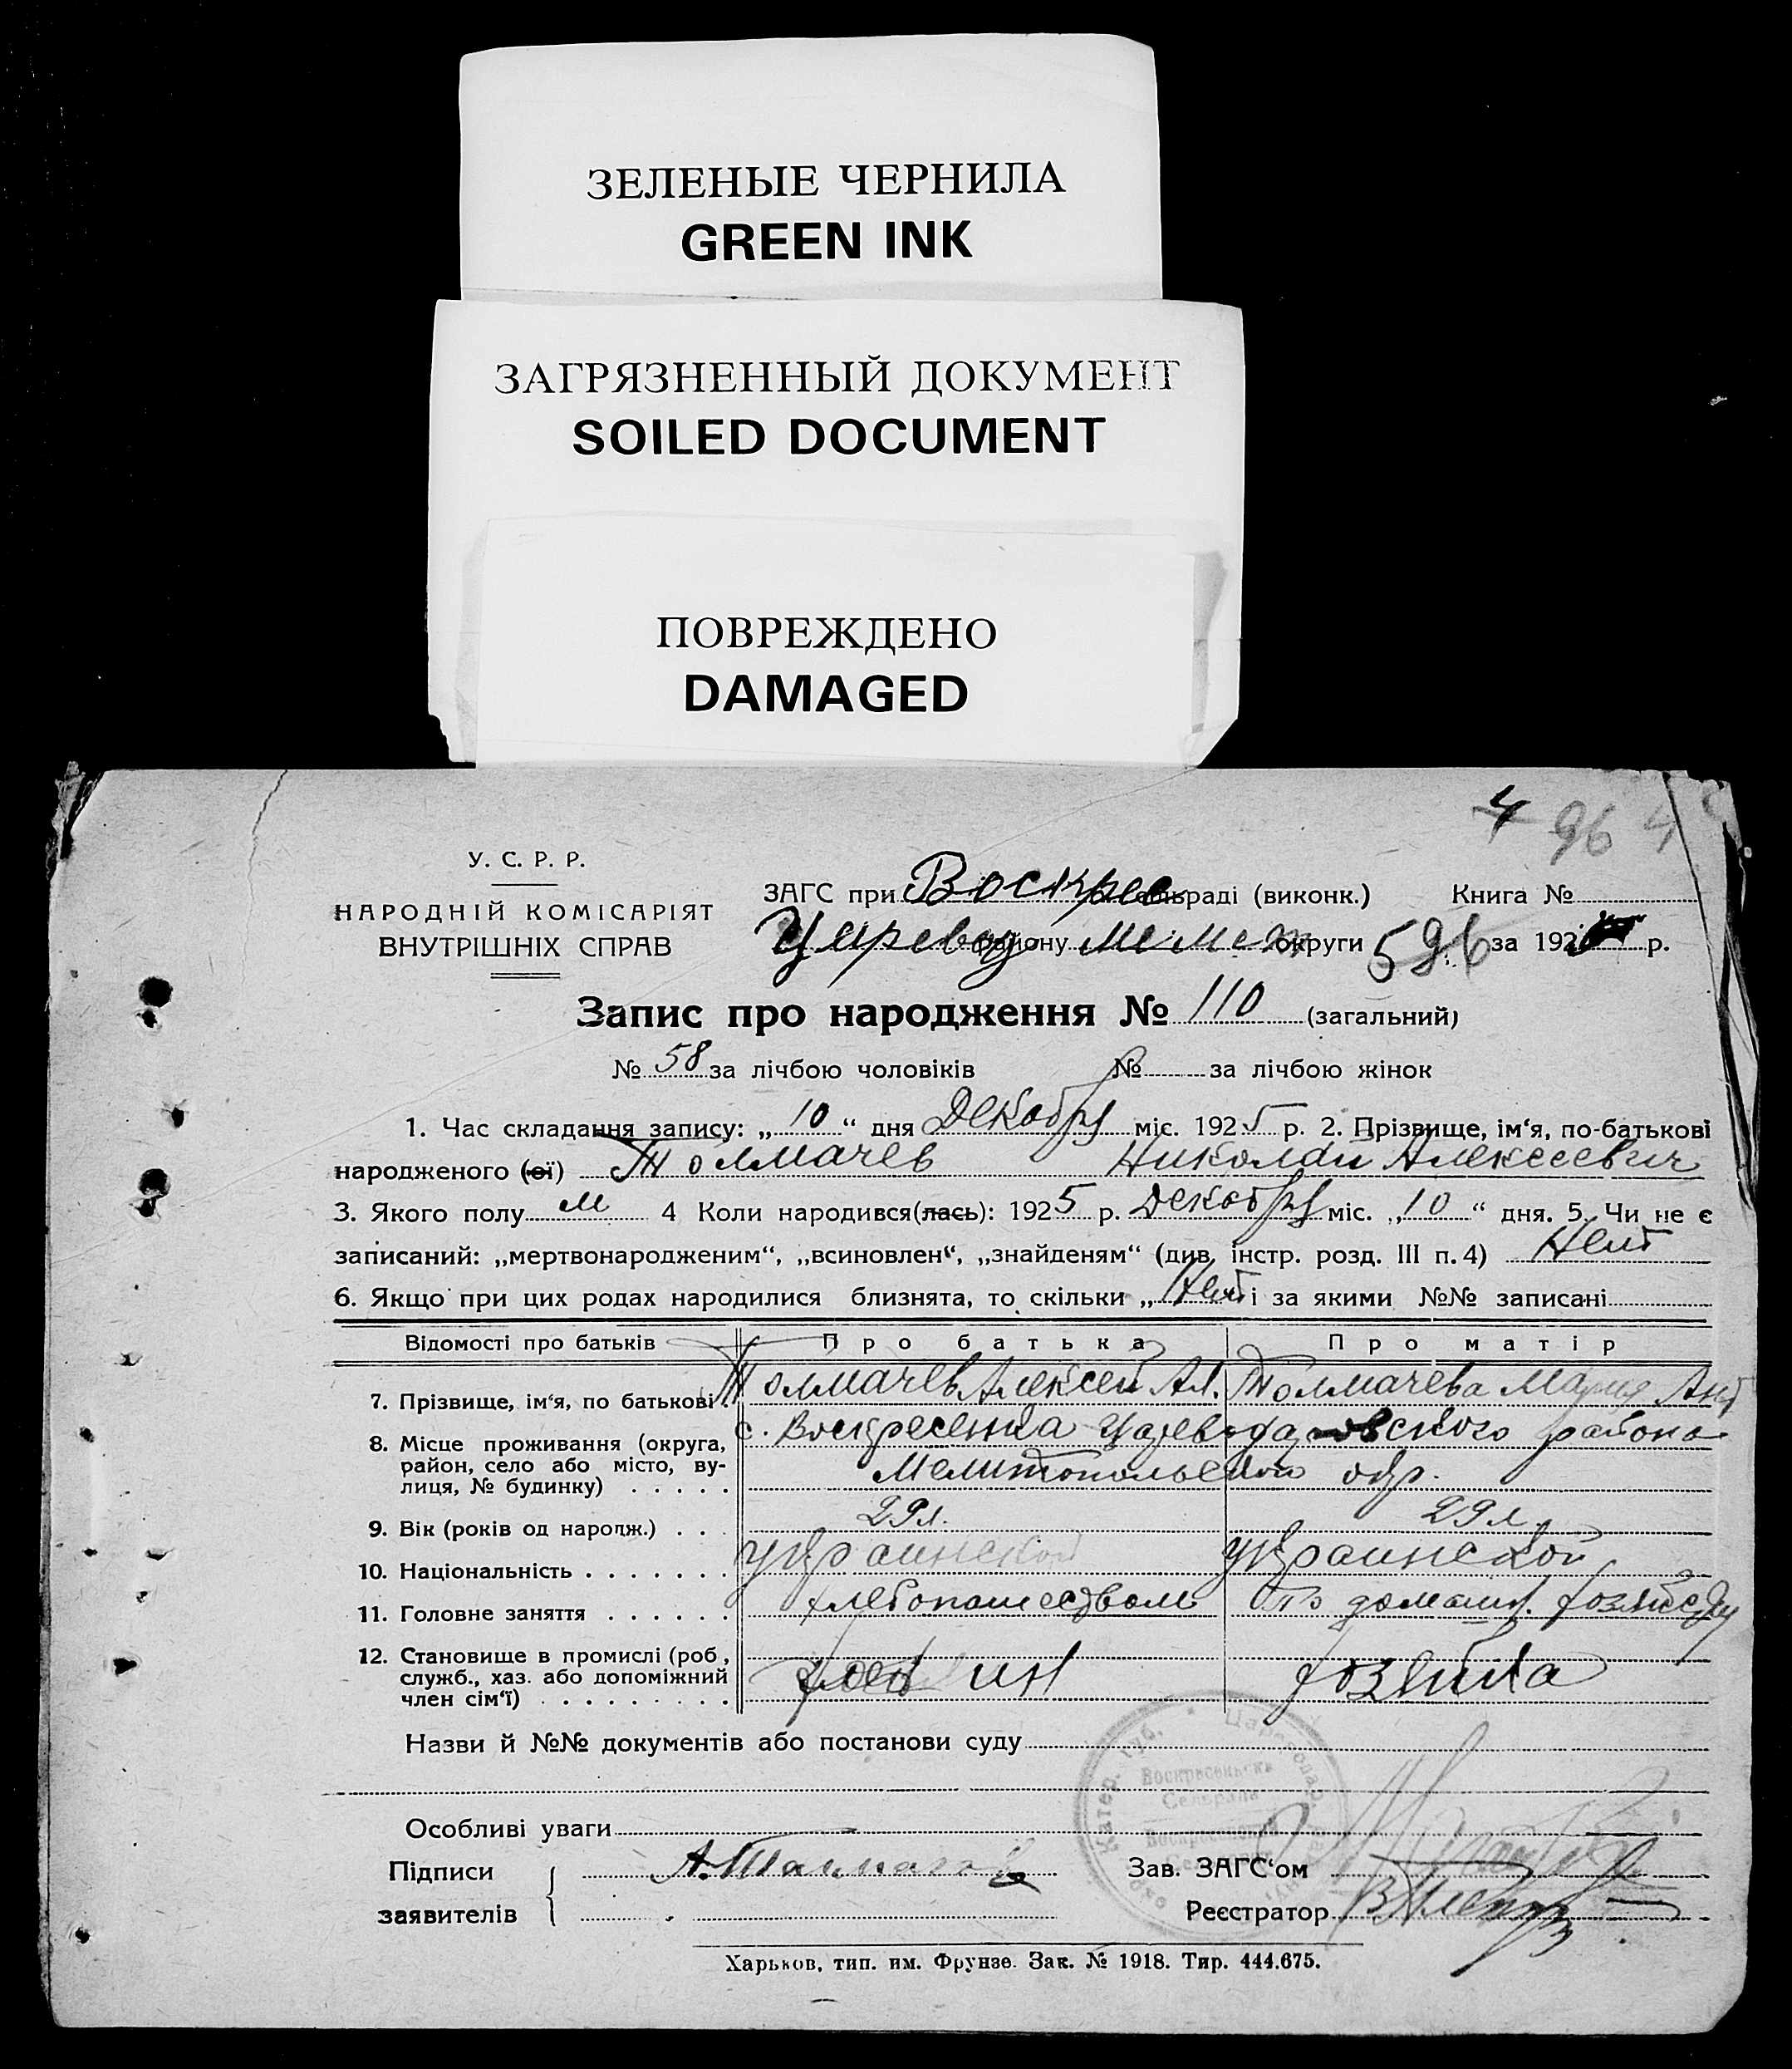 ЗЕЛЕНЫЕ ЧЕРНИЛА
GREEN INK
ЗАГРЯЗНЕННЫЙ ДОКУМЕНТ
SOILED DOCUMENT
ПОВРЕЖДЕНО
DAMAGED
4 96 4
У. С. Р. Р.
НАРОДНІЙ КОМІСАРІЯТ
ВНУТРІШНІХ СПРАВ
ЗАГС при Воскрес сільраді (виконк.) Книга №
Царевод району Мелит округи 596 за 192 р.
Запис про народження № 110 (загальний)
№ 58 за лічбою чоловіків № за лічбою жінок
1. Час складання запису: „ 10 “ дня Декабря міс. 1925 р. 2. Прізвище, ім‘я, по-батькові
народженого (ої) Толмачев Николай Алексеевич
3. Якого полу м 4 Коли народився(лась): 1925 р. Декабря міс. „ 10 “ дня. 5. Чи не є
записаний: „мертвонародженим“, „всиновлен“, „знайденям“ (див. інстр. розд. III п. 4) Нет
6. Якщо при цих родах народилися близнята, то скільки „ Нет і за якими №№ записані
Відомості про батьків Про батька Про матір
7. Прізвище, ім‘я, по батькові Толмачев Алексей Ал. Толмачева Мария Ант
8. Місце проживання (округа, с. Воскресенка Цареводаровского района
район, село або місто, ву- Мелитопольской окр.
лиця, № будинку)
9. Вік (років од народж.) 29 л. 29 л.
10. Національність украинской украинской
11. Головне заняття хлебопашеством По домашн. хозяйству
12. Становище в промислі (роб.,
служб., хаз. або допоміжний хозяин хозяйка
член сім‘ї)
Назви й №№ документів або постанови суду
Особливі уваги
Катер. губ. Царевода
Воскресеньска
Сельрада
Воскресенский
Підписи А. Толмачев Зав. ЗАГС‘ом
заявителів Реєстратор
Харьков, тип. им. Фрунзе. Зак. № 1918. Тир. 444.675.